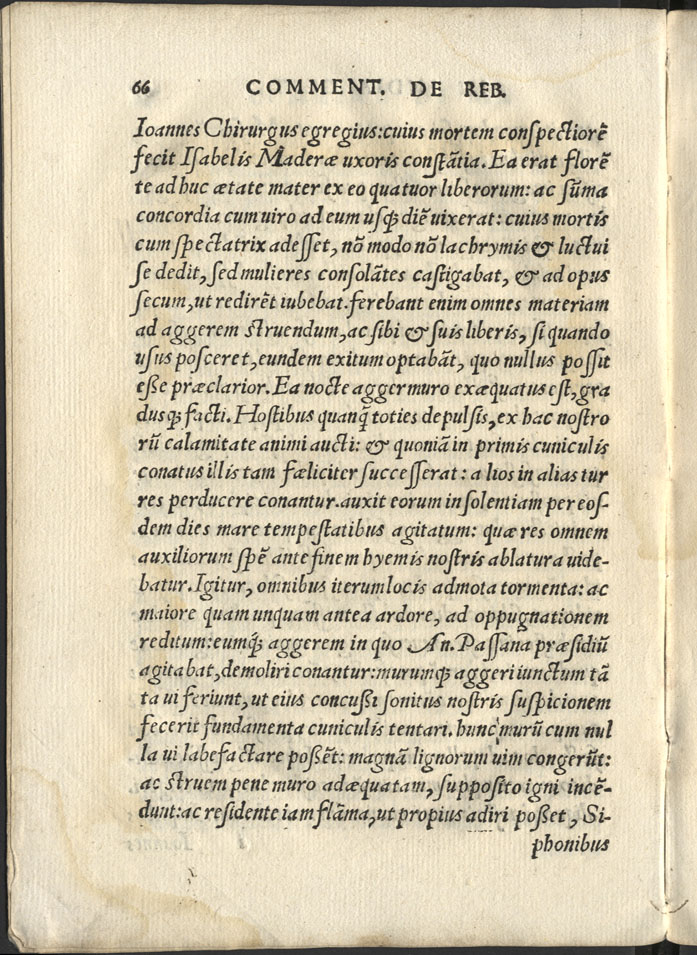 66 COMMENT. DE REB.
Ioannes Chirurgus egregius: cuius mortem conſpectiorē
fecit Iſabelis Maderæ uxoris conſtātia. Ea erat florē
te ad huc ætate mater ex eo quatuor liberorum: ac sūma
concordia cum uiro ad eum uſq́ diē uixerat: cuius mortis
cum ſpectatrix adeſſet, nō modo nō lachrymis & luctui
ſe dedit, ſed mulieres conſolātes caſtigabat, & ad opus
ſecum, ut redirēt iubebat. ferebant enim omnes materiam
ad aggerem ſtruendum, ac ſibi & ſuis liberis, ſi quando
uſus poſceret, eundem exitum optabāt, quo nullus poſſit
eße præclarior. Ea nocte agger muro exæquatus eſt, gra
dusq́ facti. Hoſtibus quanq̄ toties depulſis, ex hac noſtro
rū calamitate animi aucti: & quoniā in primis cuniculis
conatus illis tam fæliciter ſucceſſerat: alios in alias tur
res perducere conantur. auxit eorum inſolentiam per eoſ-
dem dies mare tempeſtatibus agitatum: quæ res omnem
auxiliorum ſpē ante finem hyemis noſtris ablatura uide-
batur. Igitur, omnibus iterum locis admota tormenta: ac
maiore quam unquam antea ardore, ad oppugnationem
reditum: eumq́ aggerem in quo An. Paſſana præſidiū
agitabat, demoliri conantur: murumq́ aggeri iunctum tā
ta ui feriunt, ut eius concußi ſonitus noſtris ſuſpicionem
fecerit fundamenta cuniculis tentari. hunc murū cum nul
la ui labefactare poßēt: magnā lignorum uim congerūt:
ac ſtruem pene muro adæquatam, ſuppoſito igni incē-
dunt: ac reſidente iam flāma, ut propius adiri poßet, Si-
phonibus